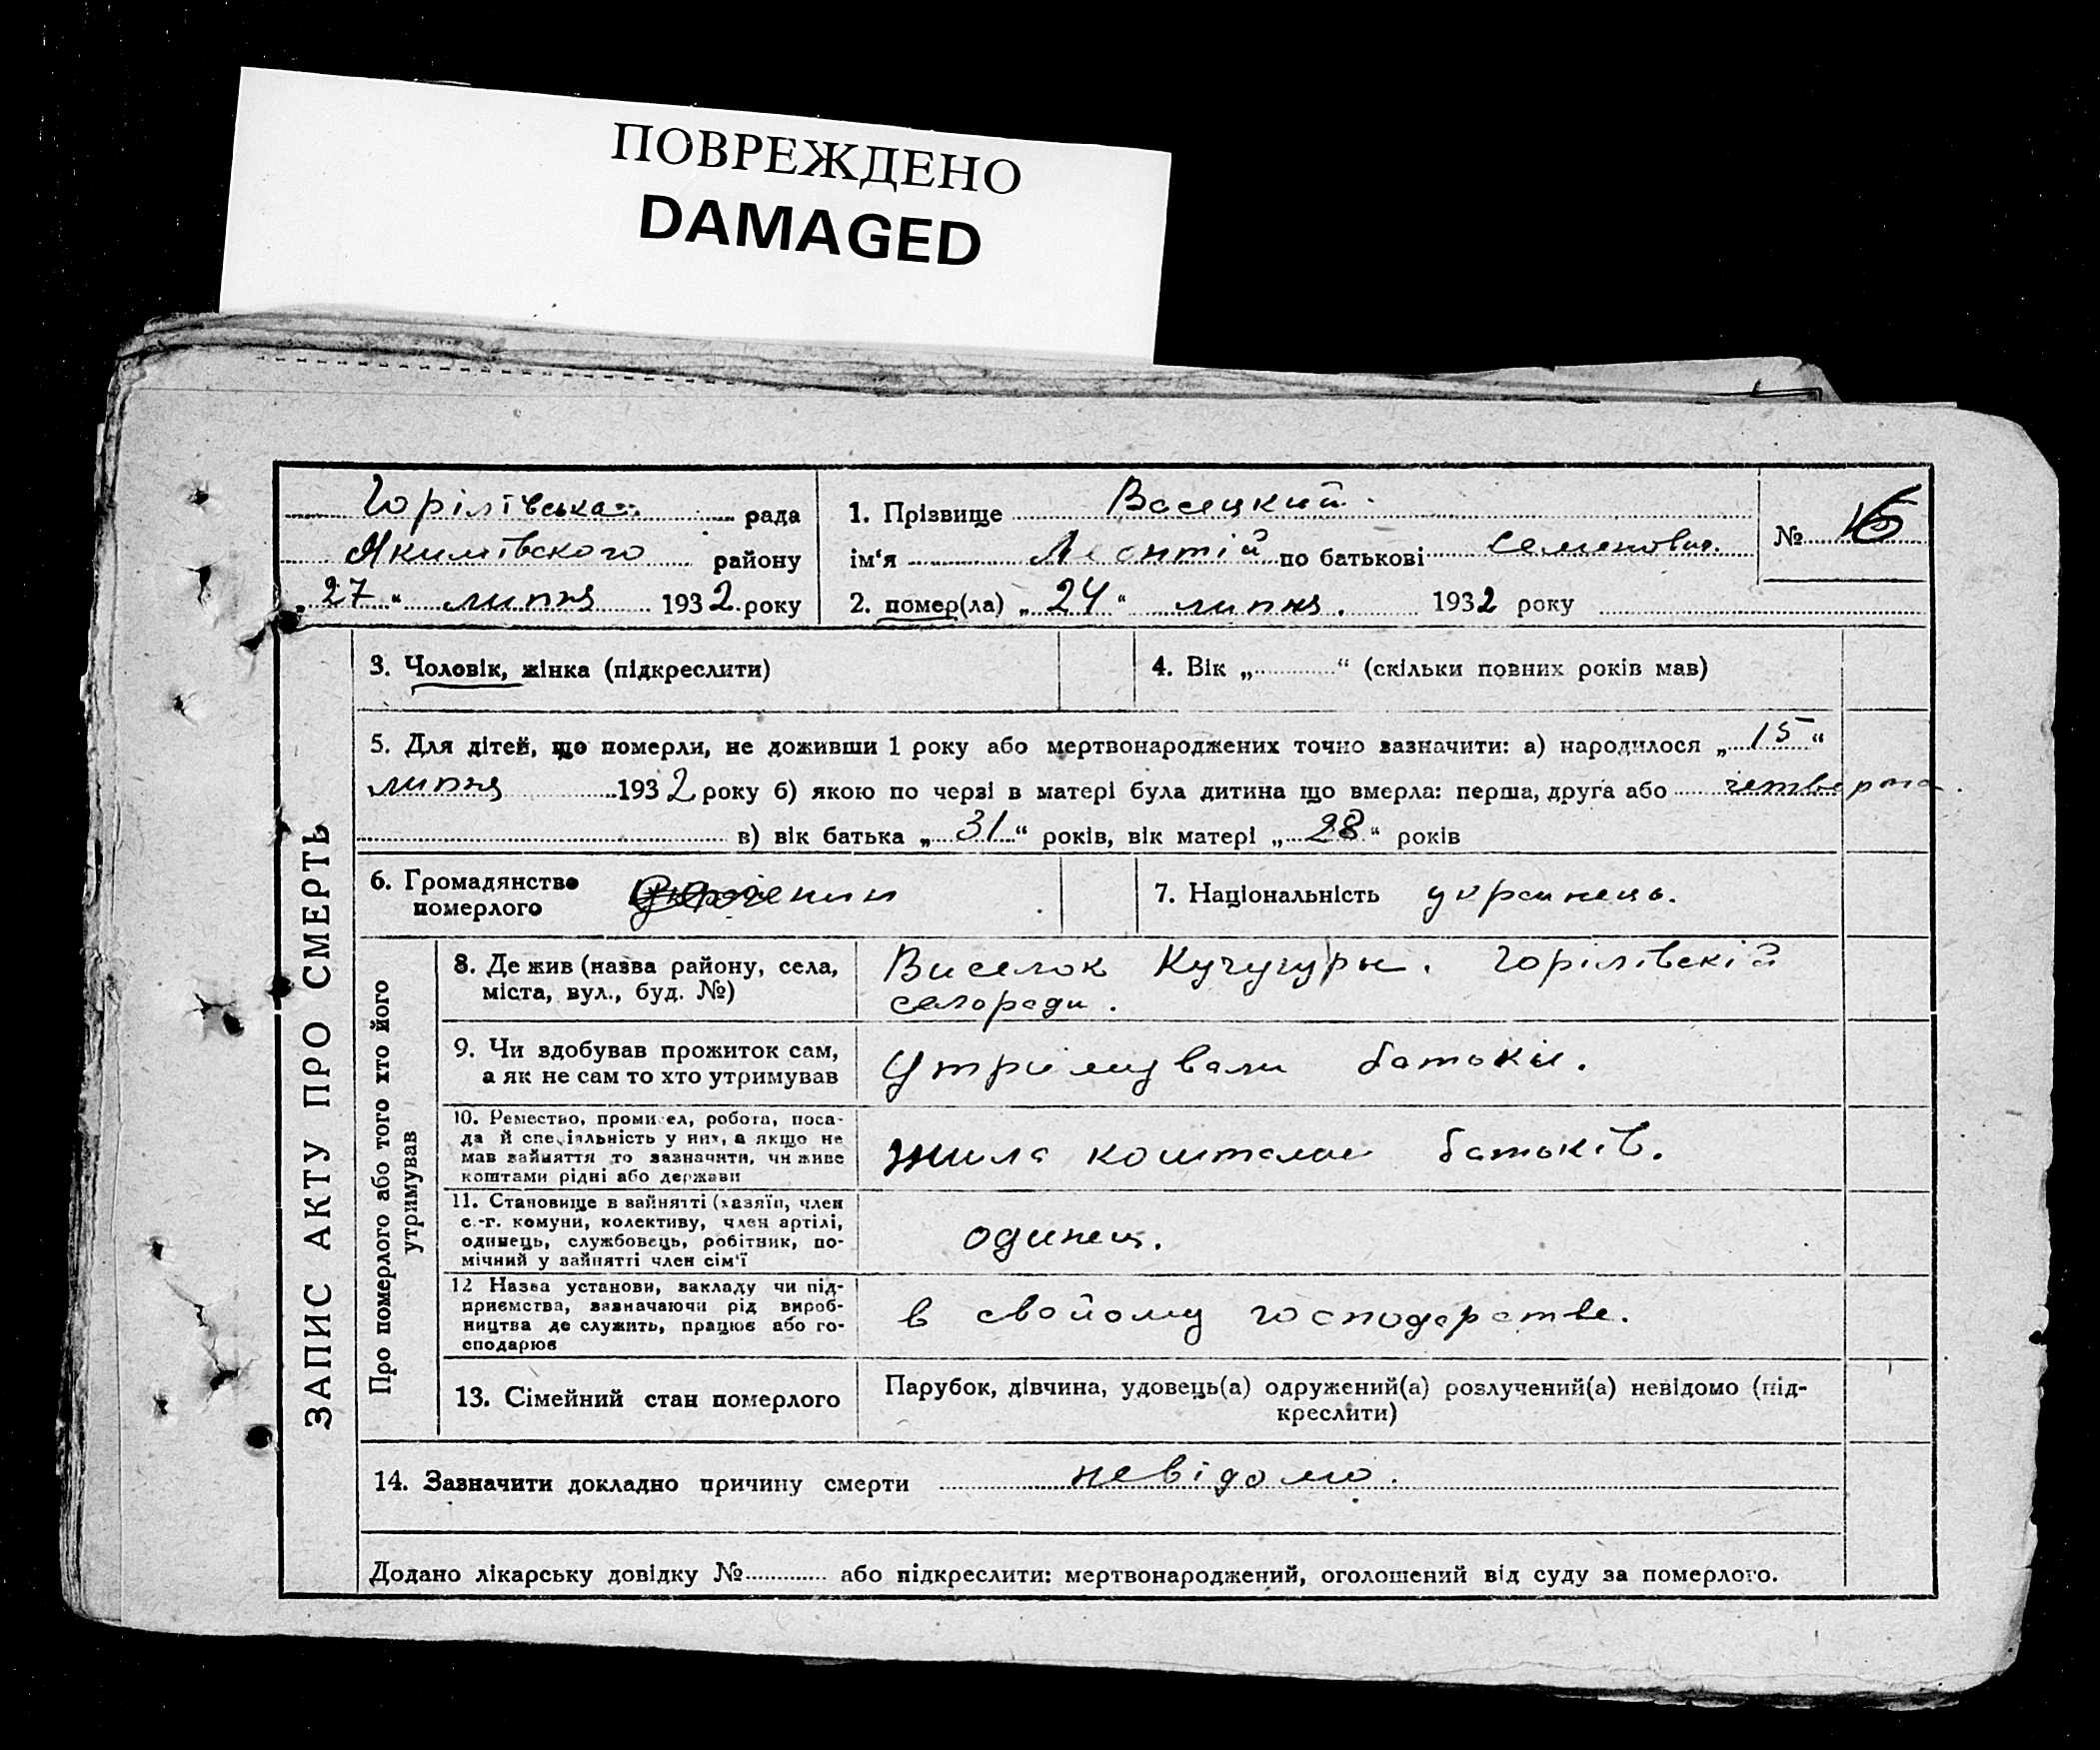 ПОВРЕЖДЕНО
DAMAGED
Горілівська рада
Якимівского району
„27“ липня 1932 року
1. Прізвище Васецкий.
ім'я Леонтій по батькові Семенович.
2. помер(ла) „24“ липня. 1932 року
№
ЗАПИС АКТУ ПРО СМЕРТЬ
3. Чоловік, жінка (підкреслити)
4. Вік „ “ (скільки повних років мав)
5. Для дітей, що померли, не доживши 1 року або мертвонароджених точно зазначити: а) народилося „15“
липня 1932 року б) якою по черзі в матері була дитина що вмерла: перша, друга або четверта.
в) вік батька „31“ років, вік матері „28“ років
6. Громадянство
померлого
7. Національність украинець.
Про померлого або того хто його
утримував
8. Де жив (назва району, села,
міста, вул., буд. №)
Виселок Кучугуры. Горілівскій
селоради.
9. Чи здобував прожиток сам,
а як не сам то хто утримував
Утрімували батьки.
10. Ремество, промисел, робота, поса-
да й спеціяльність у них, а якщо не
мав зайняття то зазначити, чи живе
коштами рідні або держави
жила коштами батьків.
11. Становище в зайнятті (хазяїн, член
с.-г. комуни, колективу, член артілі,
одинець, службовець, робітник, по-
мічний у зайнятті член сім'ї
одинец.
12 Назва установи, закладу чи під-
приємства, зазначаючи рід вироб-
ництва де служить, працює або го-
сподарює
в свойому господарстве.
13. Сімейний стан померлого
Парубок, дівчина, удовець(а) одружений(а) розлучений(а) невідомо (під-
креслити)
14. Зазначити докладно причину смерти невідомо.
Додано лікарську довідку № або підкреслити: мертвонароджений, оголошений від суду за померлого.